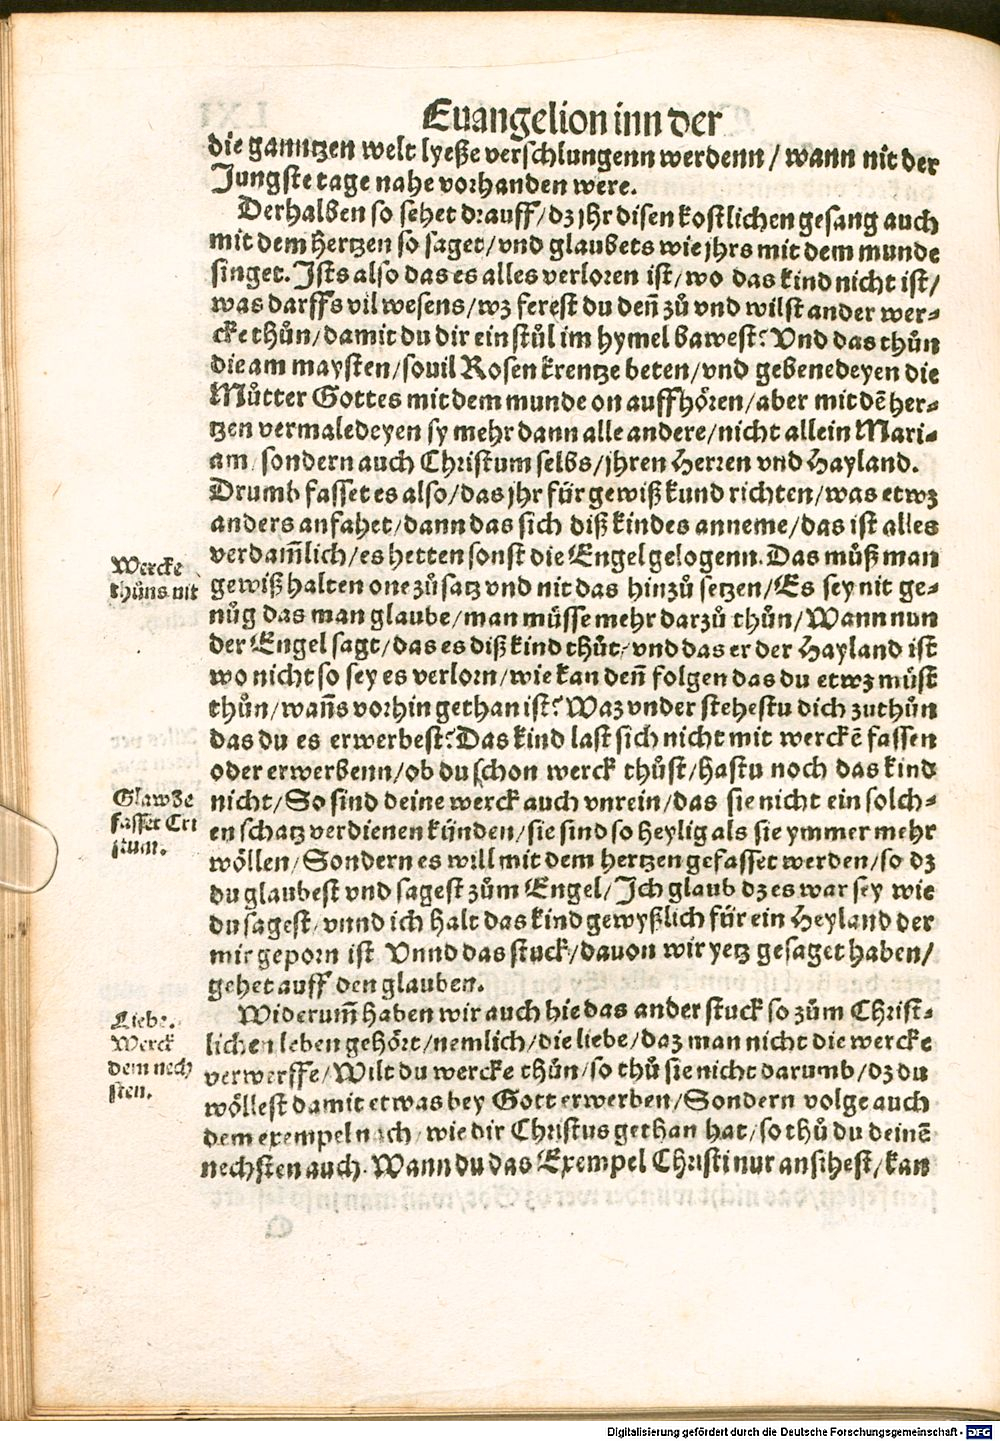 Euangelion inn der
die ganntzen welt lyeße verschlungenn werdenn / wann nit der
Jungste tage nahe vorhanden were.
Derhalben so sehet drauff / dz jhr disen kostlichen gesang auch
mit dem hertzen so saget / vnd glaubets wie jhrs mit dem munde
singet. Ists also das es alles verloren ist / wo das kind nicht ist /
was darffs vil wesens / wz ferest du deñ zů vnd wilst ander wer⸗
cke thůn / damit du dir ein stůl im hymel bawest? Vnd das thůn
die am maysten / souil Rosen krentze beten / vnd gebenedeyen die
Můtter Gottes mit dem munde on auffhören / aber mit dē her⸗
tzen vermaledeyen sy mehr dann alle andere / nicht allein Mari⸗
am / sondern auch Christum selbs / jhren Herren vnd Hayland.
Drumb fasset es also / das jhr für gewiß kund richten / was etwz
anders anfahet / dann das sich diß kindes anneme / das ist alles
verdam̃lich / es hetten sonst die Engel gelogenn. Das můß man
Wercke
thůns nit
gewiß halten one zůsatz vnd nit das hinzů setzen / Es sey nit ge⸗
nůg das man glaube / man müsse mehr darzů thůn / Wann nun
der Engel sagt / das es diß kind thůt / vnd das er der Hayland ist
wo nicht so sey es verlorn / wie kan deñ folgen das du etwz můst
thůn / wañs vorhin gethan ist? Waz vnder stehestu dich zuthůn
das du es erwerbest? Das kind last sich nicht mit werckē fassen
oder erwerbenn / ob du schon werck thůst / hastu noch das kind
Glawbe
fasset Cri
stum.
nicht / So sind deine werck auch vnrein / das sie nicht ein solch⸗
en schatz verdienen künden / sie sind so heylig als sie ymmer mehr
wöllen / Sondern es will mit dem hertzen gefasset werden / so dz
du glaubest vnd sagest zům Engel / Ich glaub dz es war sey wie
du sagest / vnnd ich halt das kind gewyßlich für ein Heyland der
mir geporn ist Vnnd das stuck / dauon wir yetz gesaget haben /
gehet auff den glauben.
Liebe.
Werck
dem nech
sten.
Widerum̃ haben wir auch hie das ander stuck so zům Christ⸗
lichen leben gehört / nemlich / die liebe / daz man nicht die wercke
verwerffe / Wilt du wercke thůn / so thů sie nicht darumb / dz du
wöllest damit etwas bey Gott erwerben / Sondern volge auch
dem exempel nach / wie dir Christus gethan hat / so thů du deinē
nechsten auch. Wann du das Exempel Christi nur ansihest / kan
Digitalisierung gefördert durch die Deutsche Forschungsgemeinschaft - DFG